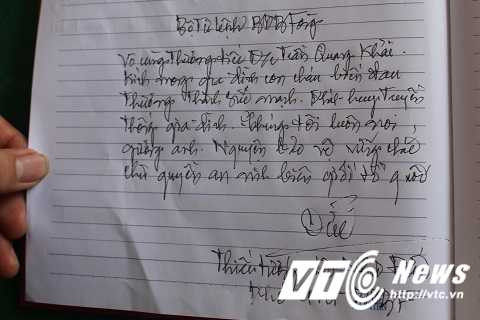 Bộ Tư lệnh BĐBPhòng
Vô cùng thương tiếc Đ/c Trần Quang Khải.
Kính mong gia đình con cháu biến đau
thương thành sức mạnh. Phát huy truyền
thống gia đình. Chúng tôi luôn noi
gương anh. Nguyện bảo vệ vững chắc
chủ quyền an ninh biên giới tổ quốc
Thiếu tướng
VTC News
http://vtc.vn